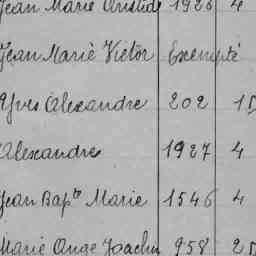 Jean Marie Aristide 1926 4
Jean Marie Victor Exempté
Yves Alexandre 202 15
Alexandre 1927 4
Jean Bapte Marie 1546 4
Marie Ange Joachim 958 25